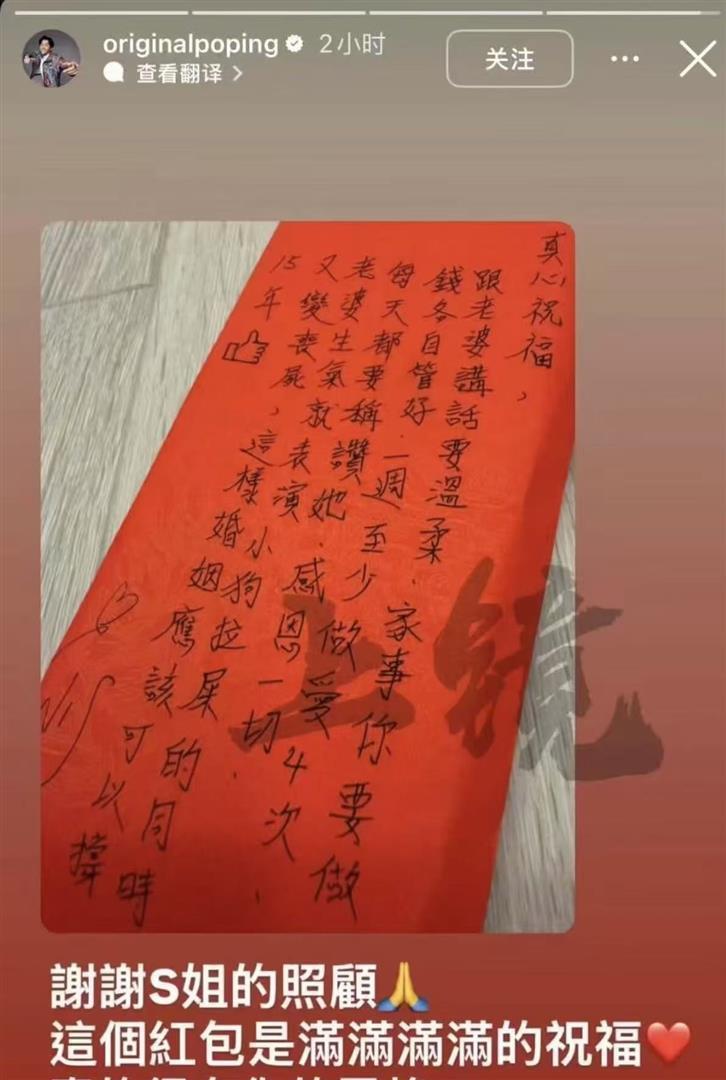 originalpoping 2小时
查看翻译
关注
真心祝福,
跟老婆講話要溫柔.家事你要做
錢各自管好.一週至少做愛4次.
每天都要稱讚她.感恩一切.
老婆生氣就表演小狗拉屎的同時
又變喪屍,這樣婚姻應該可以撐
15年
上镜
謝謝S姐的照顧🙏
這個紅包是滿滿滿滿的祝福❤️